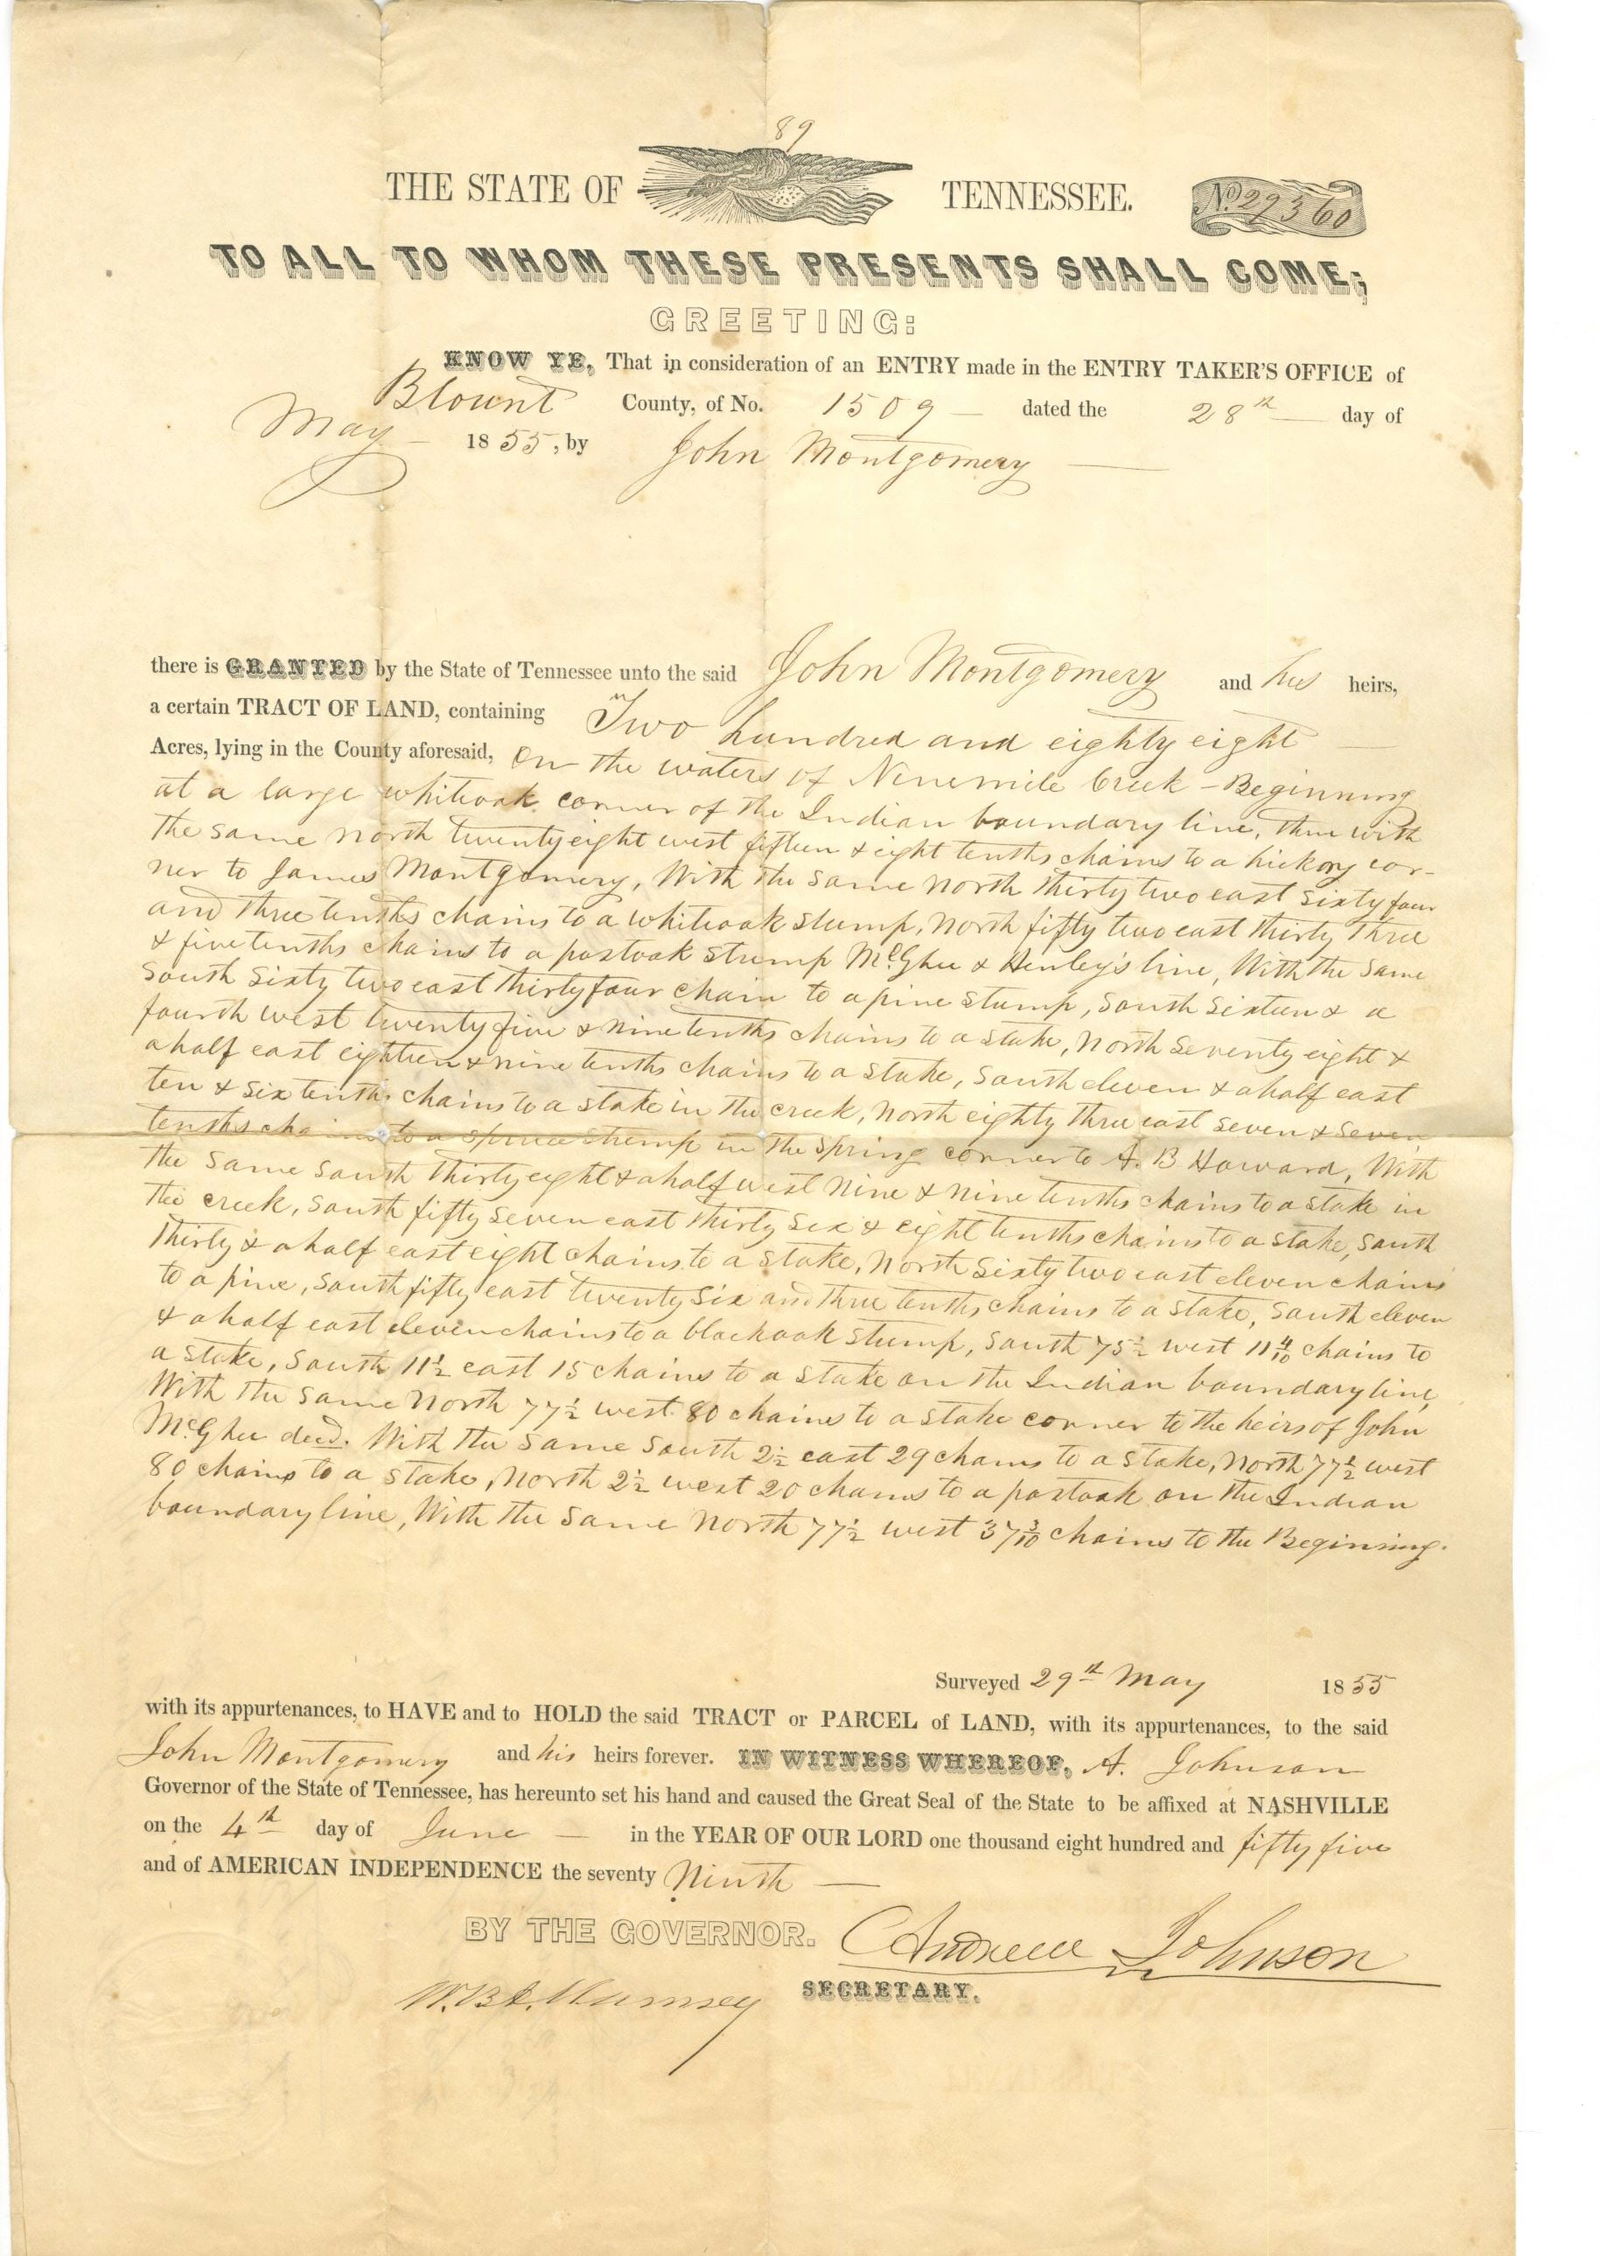 89
THE STATE OF TENNESSEE. No. 29360
TO ALL TO WHOM THESE PRESENTS SHALL COME;
GREETING:
KNOW YE, That in consideration of an ENTRY made in the ENTRY TAKER'S OFFICE of
Blount County, of No. 1509 — dated the 28th — day of
May — 1855, by John Montgomery —
there is GRANTED by the State of Tennessee unto the said John Montgomery and his heirs,
a certain TRACT OF LAND, containing Two hundred and eighty eight —
Acres, lying in the County aforesaid, on the waters of Ninemile Creek – Beginning
at a large whiteoak corner of the Indian boundary line, then with
the same north twentyeight west fifteen & eight tenths chains to a hickory cor-
ner to James Montgomery, With the same north thirty two east sixty four
and three tenths chains to a whiteoak stump, north fifty two east thirty three
& five tenths chains to a postoak stump McGhee & Henley's line, With the same
south sixty two east thirty four chain to a pine stump, south sixteen & a
fourth west twenty five & nine tenths chains to a stake, north seventy eight &
a half east eighteen & nine tenths chains to a stake, south eleven & a half east
ten & six tenths chains to a stake in the creek, north eighty three east seven & seven
tenths chains to a spruce stump in the spring corner to A. B. Howard, With
the same south thirty eight & a half west nine & nine tenths chains to a stake in
the creek, south fifty seven east thirty six & eight tenths chains to a stake, south
thirty & a half east eight chains to a stake, north sixty two east eleven chains
to a pine, south fifty east twenty six and three tenths chains to a stake, south eleven
& a half east eleven chains to a blackoak stump, south 75½ west 11 4/10 chains to
a stake, south 11½ east 15 chains to a stake on the Indian boundary line,
With the same north 77½ west 80 chains to a stake corner to the heirs of John
McGhee decd. With the same south 2½ east 29 chains to a stake, north 77½ west
80 chains to a stake, north 2½ west 20 chains to a postoak on the Indian
boundary line, With the same north 77½ west 37 3/10 chains to the Beginning.
Surveyed 29th May 1855
with its appurtenances, to HAVE and to HOLD the said TRACT or PARCEL of LAND, with its appurtenances, to the said
John Montgomery and his heirs forever. IN WITNESS WHEREOF, A. Johnson
Governor of the State of Tennessee, has hereunto set his hand and caused the Great Seal of the State to be affixed at NASHVILLE
on the 4th day of June — in the YEAR OF OUR LORD one thousand eight hundred and fifty five
and of AMERICAN INDEPENDENCE the seventy Ninth —
BY THE GOVERNOR. Andrew Johnson
SECRETARY.